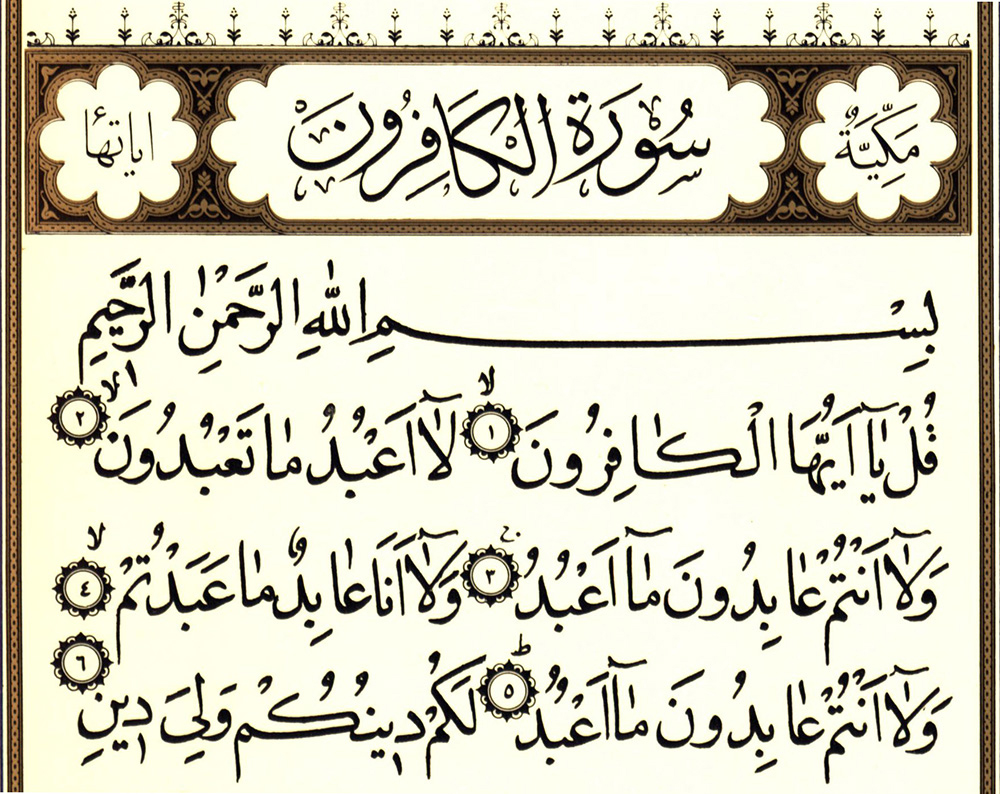 مَكِّيَّةٌ سُورَةُ الْكَافِرُونَ اياتها
بِسْمِ اللّٰهِ الرَّحْمٰنِ الرَّحِيمِ
قُلْ يَٓا اَيُّهَا الْكَافِرُونَ ١ لَٓا اَعْبُدُ مَا تَعْبُدُونَ ٢
وَلَٓا اَنْتُمْ عَابِدُونَ مَٓا اَعْبُدُ ٣ وَلَٓا اَنَا عَابِدٌ مَا عَبَدْتُمْ ٤
وَلَٓا اَنْتُمْ عَابِدُونَ مَٓا اَعْبُدُ ٥ لَكُمْ دِينُكُمْ وَلِيَ دِينِ ٦